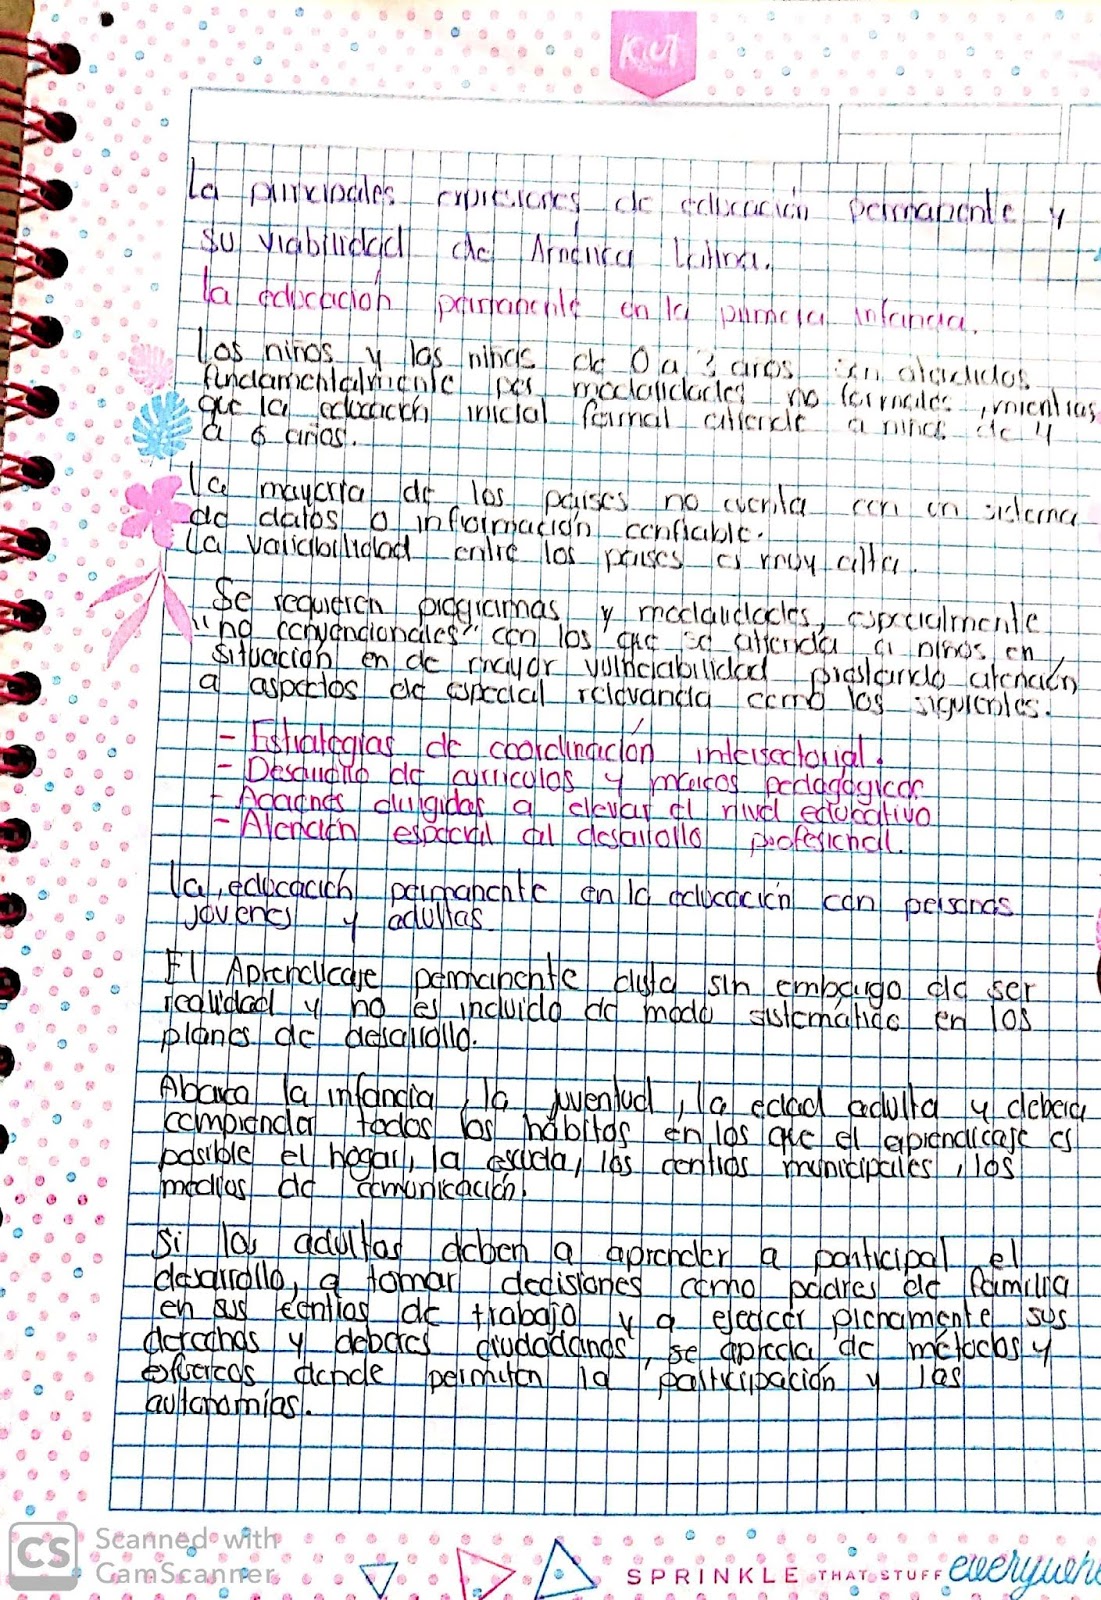 Kiut
La principales expresiones de educación permanente y
su viabilidad de América Latina.
la educación permanente en la primera infancia.
Los niños y las niñas de 0 a 3 años son atendidos
fundamentalmente por modalidades no formales, mientras
que la educación inicial formal atiende a niños de 4
a 6 años.
La mayoria de los paises no cuenta con un sistema
de datos o información confiable.
La variabilidad entre los paises es muy alta.
Se requieren programas y modalidades, especialmente
"no convencionales" con los que se atienda a niños en
situación en de mayor vulnerabilidad prestando atención
a aspectos de especial relevancia como los siguientes.
- Estrategias de coordinación intersectorial.
- Desarrollo de curriculos y marcos pedagógicos
- Acciones dirigidas a elevar el nivel educativo
- Atención especial al desarrollo profesional.
La educación permanente en la educación con personas
jovenes y adultas
El Aprendizaje permanente dista sin embargo de ser
realidad y no es incluido de modo sistemático en los
planes de desarrollo.
Abarca la infancia, la juventud, la edad adulta y deberia
comprender todos los hábitos en los que el aprendizaje es
posible el hogar, la escuela, los centros municipales, los
medios de comunicación.
Si los adultos deben a aprender a participar el
desarrollo, a tomar decisiones como padres de familia
en sus centros de trabajo y a ejercer plenamente sus
derechos y deberes ciudadanos, se aprecia de métodos y
esfuerzos donde permiten la participación y las
autonomías.
CS Scanned with
CamScanner
SPRINKLE THAT STUFF everywhe